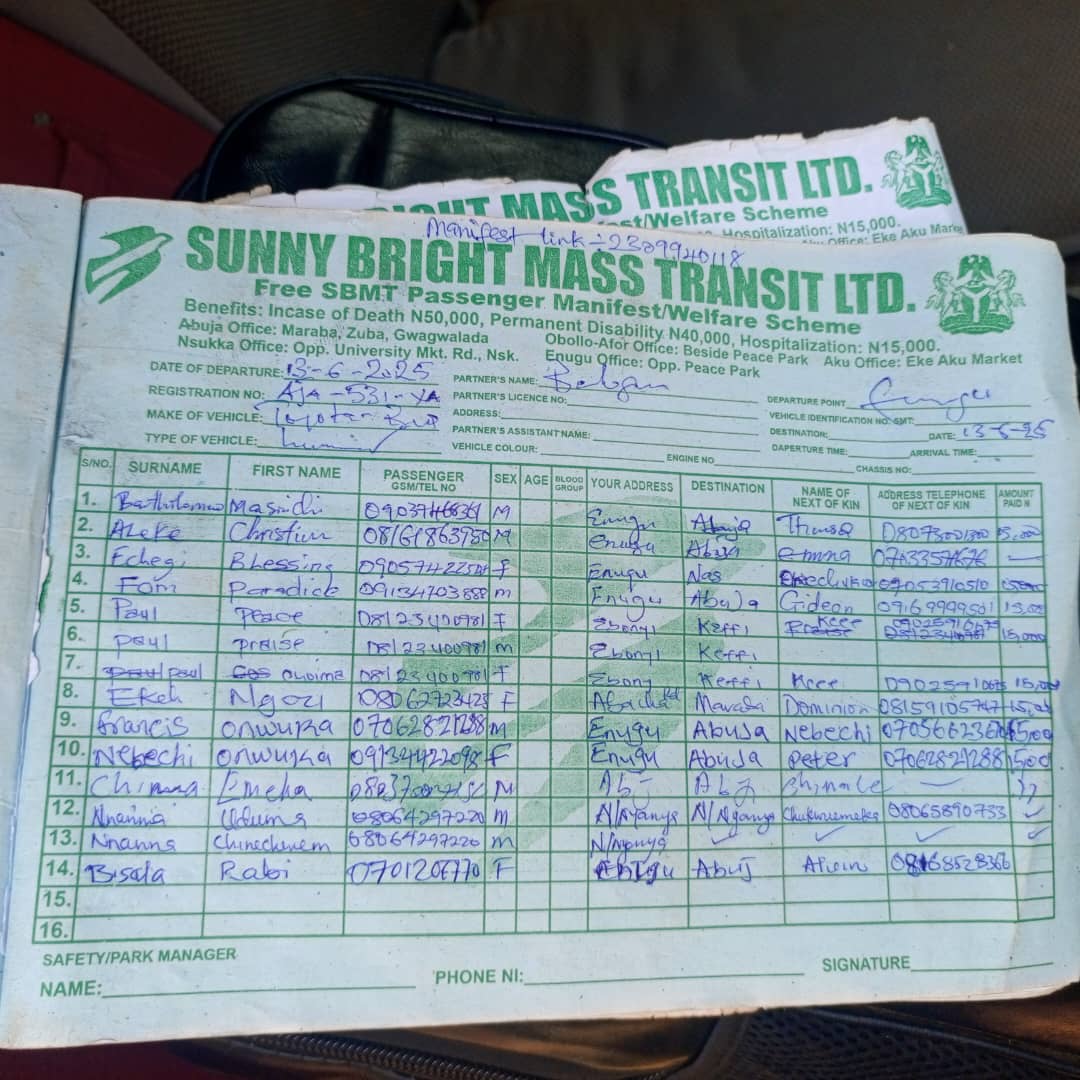 BRIGHT MASS TRANSIT LTD.
Manifest/Welfare Scheme
Hospitalization: N15,000.
Office: Eke Aku Market
Manifest link - 2309940118
SUNNY BRIGHT MASS TRANSIT LTD.
Free SBMT Passenger Manifest/Welfare Scheme
Benefits: Incase of Death N50,000, Permanent Disability N40,000, Hospitalization: N15,000.
Abuja Office: Maraba, Zuba, Gwagwalada Obollo-Afor Office: Beside Peace Park Aku Office: Eke Aku Market
Nsukka Office: Opp. University Mkt. Rd., Nsk. Enugu Office: Opp. Peace Park
DATE OF DEPARTURE: 13-6-2025 PARTNER'S NAME: DEPARTURE POINT Enugu
REGISTRATION NO: AJA-531-YA PARTNER'S LICENCE NO: VEHICLE IDENTIFICATION NO: SMT:
MAKE OF VEHICLE: Toyota Bus ADDRESS: DESTINATION: DATE: 13-6-25
TYPE OF VEHICLE: PARTNER'S ASSISTANT NAME: DAPERTURE TIME: ARRIVAL TIME:
VEHICLE COLOUR: ENGINE NO CHASSIS NO:
S/NO. SURNAME FIRST NAME PASSENGER GSM/TEL NO SEX AGE BLOOD GROUP YOUR ADDRESS DESTINATION NAME OF NEXT OF KIN ADDRESS TELEPHONE OF NEXT OF KIN AMOUNT PAID N
1. M Enugu Abuja 15,000
2. Aleke Christian M Enugu Abuja Emma
3. Echegi Blessing F Enugu Nas
4. Fom Paradick 09134703888 M Enugu Abuja Gideon 09169999501 15,000
5. Paul Peace 08123400981 F Ebonyi Keffi Kcee 15,000
6. Paul Praise 08123400981 M Ebonyi Keffi
7. Paul 08123400981 F Ebony Keffi Kcee 09025910675 15,000
8. Ekeh Ngozi 08062723428 F Marada Dominion 08159105747
9. Francis Onwuka 07062821288 M Enugu Abuja Nebechi
10. Nebechi Onwuka F Enugu Abuja Peter 07062821288
11. Emeka M Abj Abj
12. Nnanna 08064297220 M N/Nyanya N/Nyanya Chukwuemeka 08065890733
13. Nnanna Chinechenem 08064297220 M N/Nyanya
14. Bisala Rabi F Enugu Abuj 08168528366
15.
16.
SAFETY/PARK MANAGER
NAME: PHONE NI: SIGNATURE